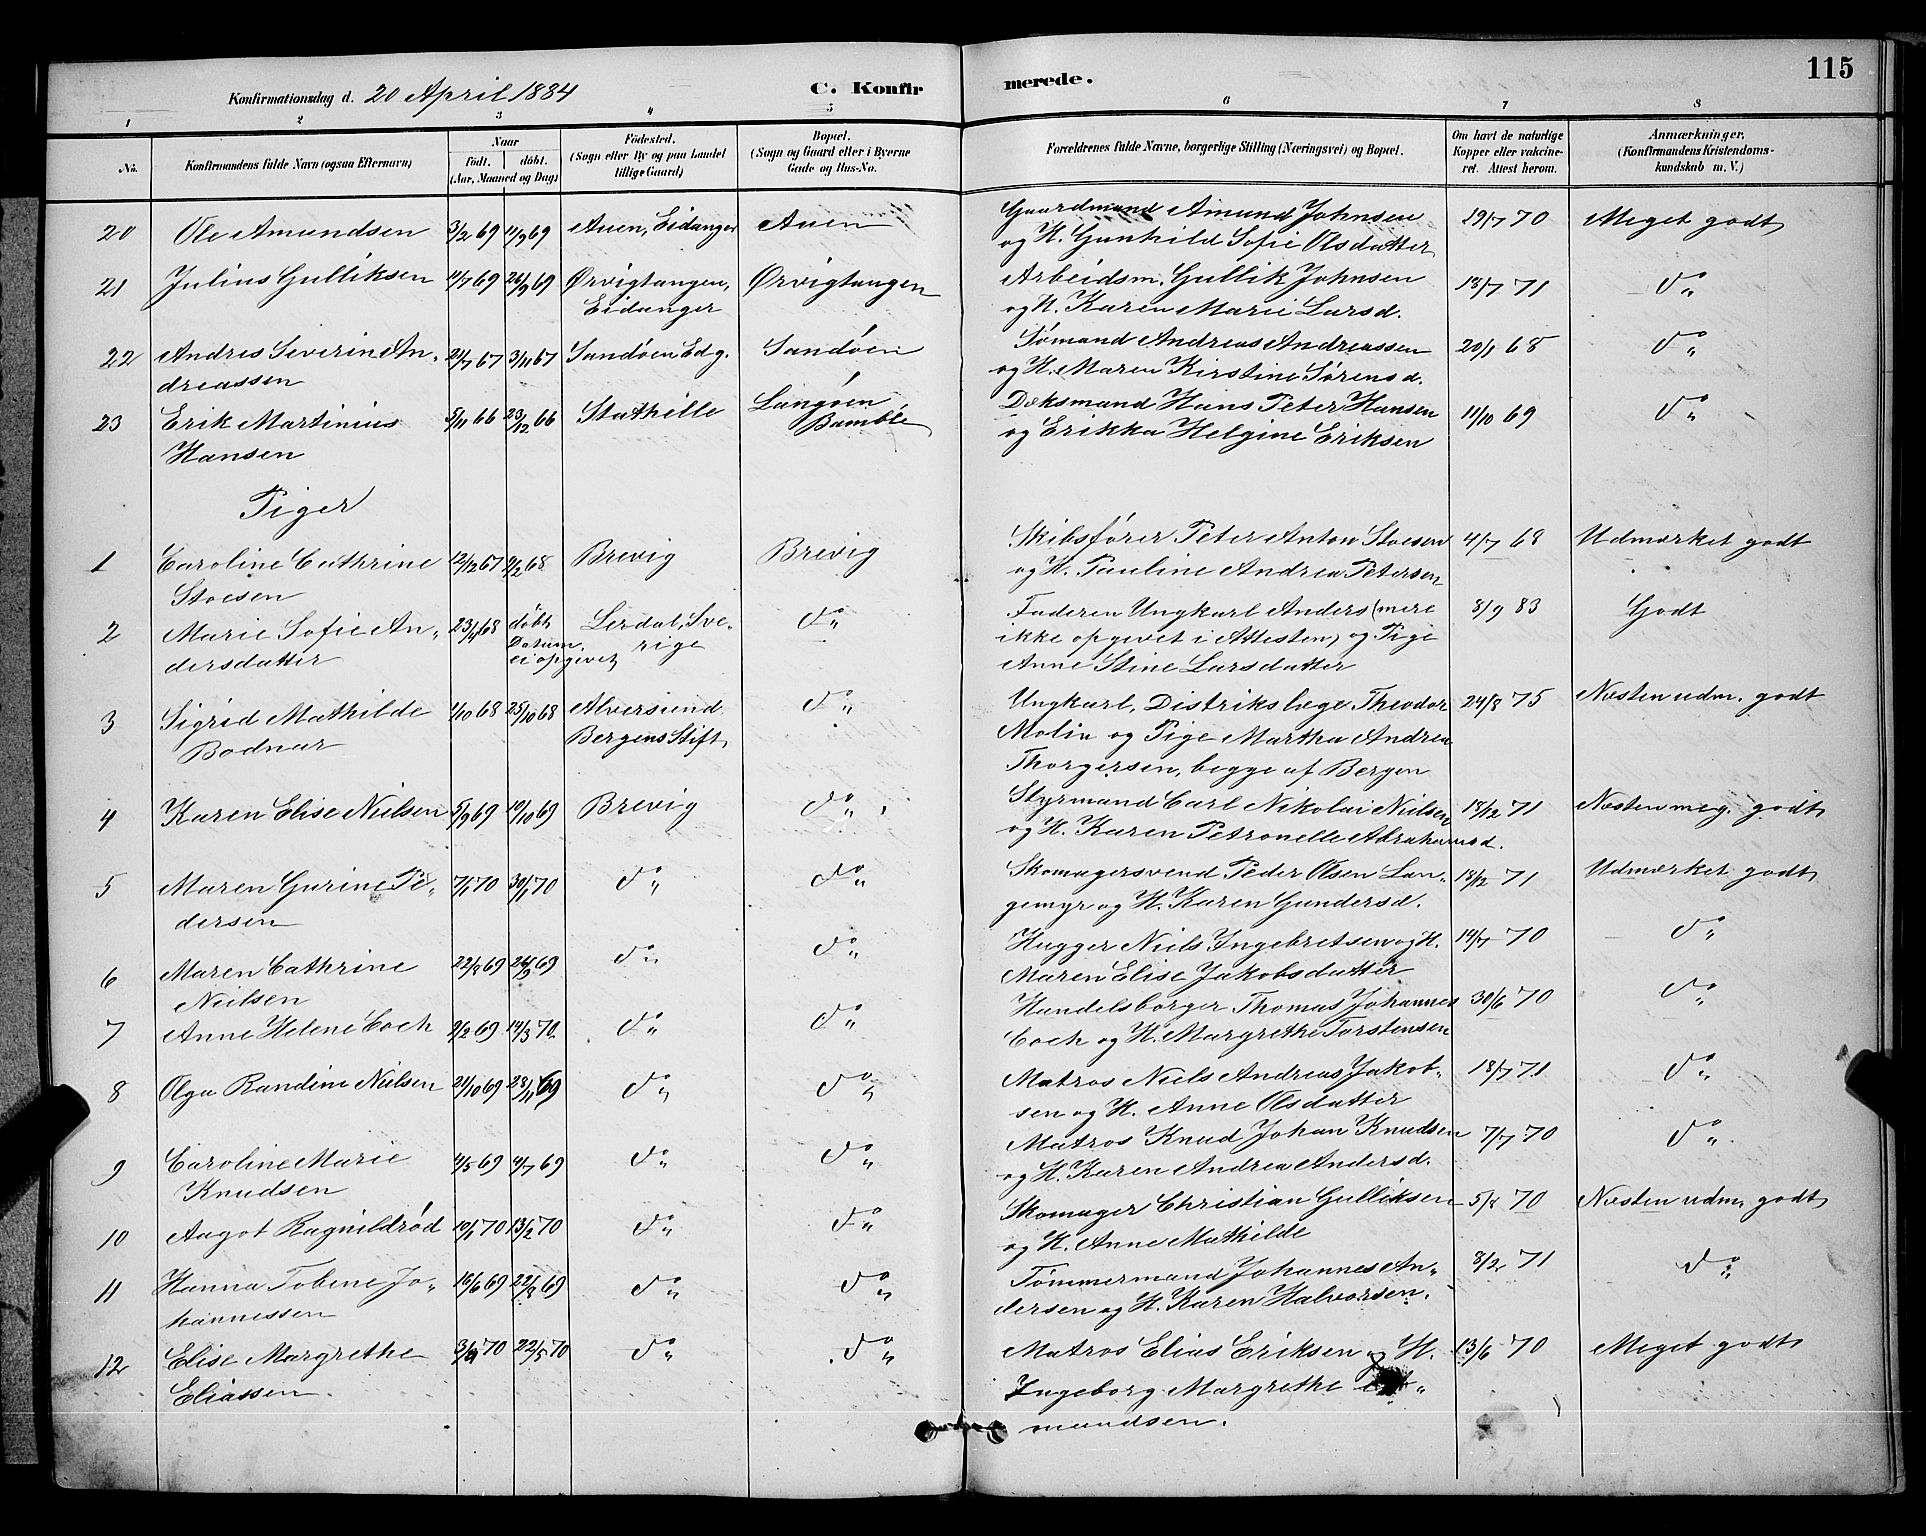 115
Konfirmationsdag d. 20 April 1884 C. Konfirmerede.
1 2 3 4 5 6 7 8
No. Konfirmandens fulde Navn (ogsaa Efternavn) Naar født. døbt. (Aar, Maaned og Dag) Fødested. (Sogn eller By og paa Landet tillige Gaard) Bopæl. (Sogn og Gaard eller i Byerne Gade og Hus-No. Forældrenes fulde Navne, borgerlige Stilling (Næringsvei) og Bopæl. Om havt de naturlige Kopper eller vakcineret. Attest herom. Anmærkninger. (Konfirmandens Kristendomskundskab m. V.)
20 Ole Amundsen 3/2 69 11/9 69 Auen, Eidanger Auen Gaardmand Amund Johnsen 19/7 70 Meget godt
og H. Gunhild Sofie Olsdatter
21 Julius Gulliksen 11/7 69 26/9 69 Ørvigtangen, Ørvigtangen Arbeidsm. Gullik Johnsen 18/7 71 do
Eidanger og H. Karen Marie Larsd.
22 Andres Severin An- 21/7 67 3/11 67 Sandøen Edg. Sandøen Sømand Andreas Andreassen 20/1 68 do
dreassen og H. Maren Kirstine Sørensd.
23 Erik Martinius 5/11 66 23/12 66 Stathelle Langøen Dæksmand Hans Peter Hansen 11/10 69 do
Hansen Bamble og Erikka Helgine Eriksen
Piger
1 Caroline Cathrine 12/12 67 9/2 68 Brevig Brevig Skibsfører Peter Anton Stoesen 4/7 68 Udmærket godt
Stoesen og H. Pauline Andrea Petersen
2 Marie Sofie An- 23/4 68 døbt Lerdal, Sve- do Faderen Ungkarl Anders (mere 8/9 83 Godt
dersdatter Datum ei opgivet rige ikke opgivet i Attesten) og Pige
Anne Stine Larsdatter
3 Sigrid Mathilde 1/10 68 25/10 68 Alversund do Ungkarl, Distrikslæge Theodor 24/8 75 Næsten udm. godt
Bodnar Bergens Stift Molin og Pige Martha Andrea
Thorgersen, begge af Bergen
4 Karen Elise Nielsen 5/9 69 10/10 69 Brevig do Styrmand Carl Nikolai Nielsen 18/12 71 Næsten meg. godt
og H. Karen Petronelle Abrahamsd.
5 Maren Gurine Pe- 7/1 70 30/1 70 do do Skomagersvend Peder Olsen Lan- 18/12 71 Udmærket godt
dersen gemyr og H. Karen Gundersd.
6 Maren Cathrine 22/8 69 26/9 69 do do Hugger Niels Ingebretsen og H. 14/7 70 do
Nielsen Maren Elise Jakobsdatter
7 Anne Helene Coch 2/2 69 14/3 70 do do Handelsborger Thomas Johannes 30/6 70 do
Coch og H. Margrethe Torstensen
8 Olga Randine Nielsen 21/10 69 28/11 69 do do Matros Niels Andreas Jakob- 18/7 71 do
sen og H. Anne Olsdatter
9 Caroline Marie 4/5 69 4/7 69 do do Matros Knud Johan Knudsen 7/7 70 do
Knudsen og H. Karen Andrea Andersd.
10 Aagot Ragnildrød 10/1 70 13/2 70 do do Skomager Christian Gulliksen 5/8 70 Næsten udm. godt
og H. Anne Mathilde
11 Hanna Tobine Jo- 16/6 69 22/8 69 do do Tømmermand Johannes An- 8/2 71 do
hannessen dersen og H. Karen Halvorsen.
12 Elise Margrethe 3/4 70 22/5 70 do do Matros Elias Eriksen og H. 13/6 70 Meget godt
Eliassen Ingeborg Margrethe
mundsen.